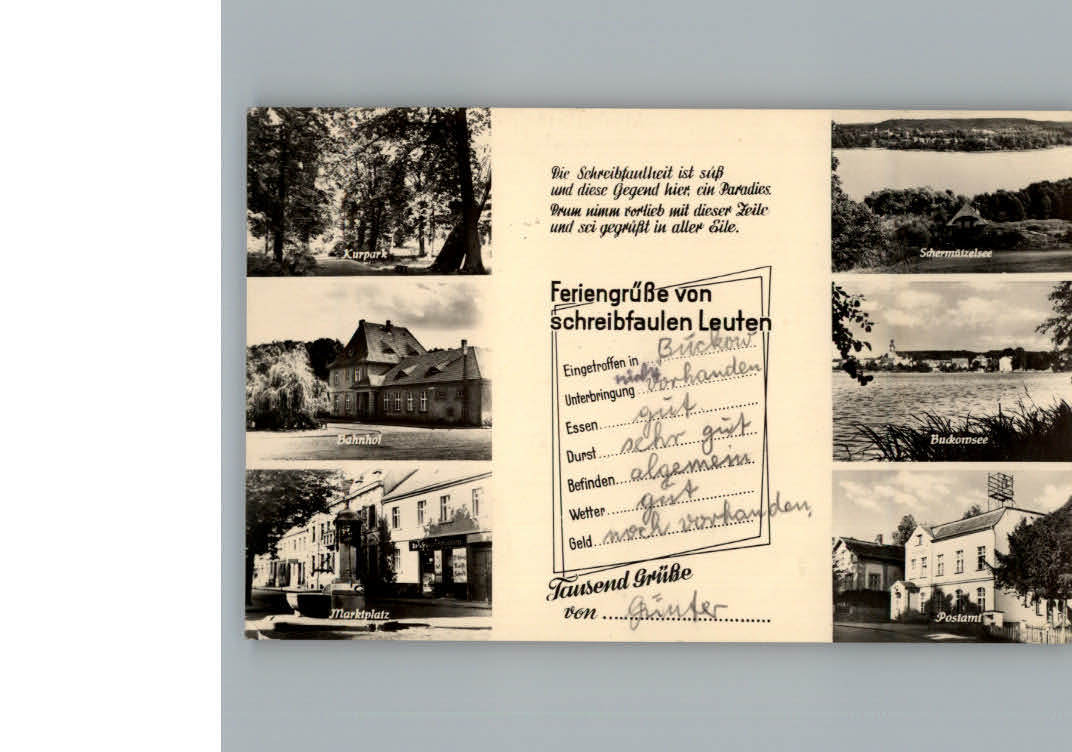 Die Schreibfaulheit ist süß
und diese Gegend hier, ein Paradies.
Drum nimm vorlieb mit dieser Zeile
und sei gegrüßt in aller Eile.
Feriengrüße von
schreibfaulen Leuten
Eingetroffen in Buckow
nicht
Unterbringung vorhanden
Essen gut
Durst sehr gut
Befinden algemein
Wetter gut
Geld noch vorhanden,
Tausend Grüße
von Günter
Kurpark
Bahnhof
Marktplatz
Schermützelsee
Buckowsee
Postamt